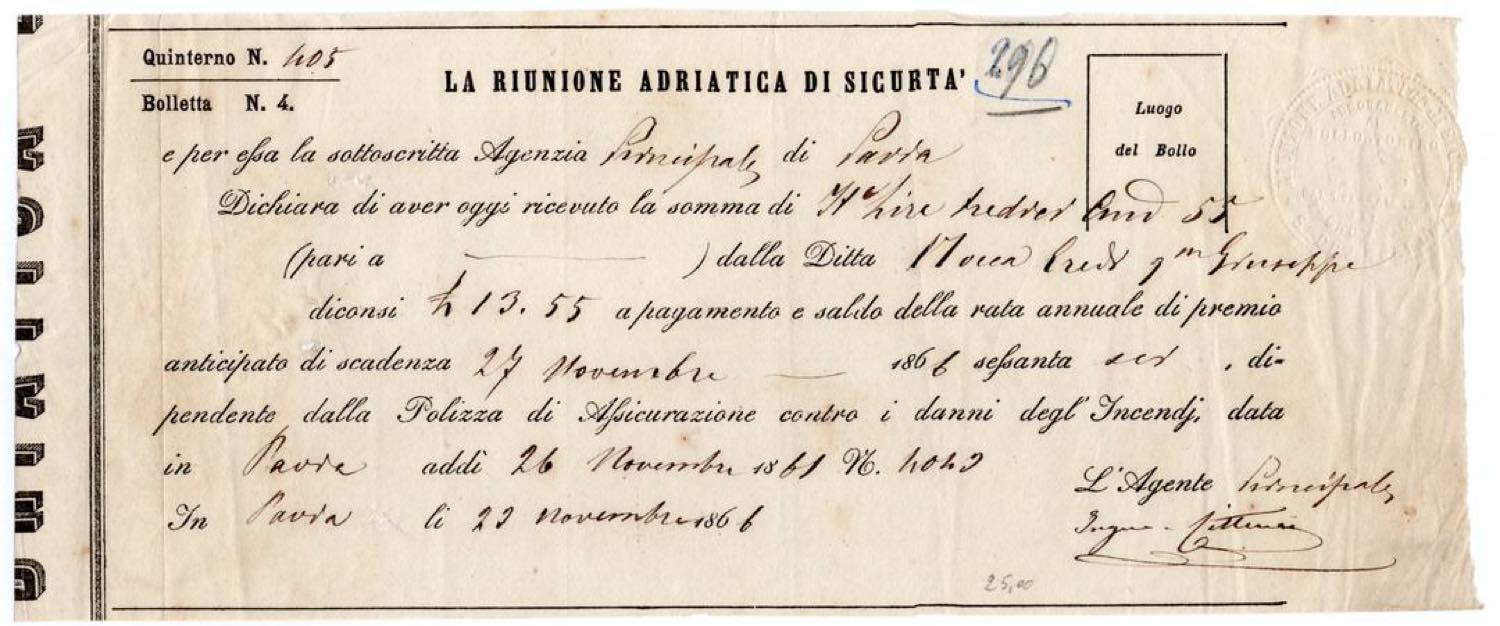 Quinterno N. 405
Bolletta N. 4.
LA RIUNIONE ADRIATICA DI SICURTA'
296
Luogo
del Bollo
e per essa la sottoscritta Agenzia Principale di Pavia
Dichiara di aver oggi ricevuto la somma di It Lire tredici Cmi 55
(pari a ) dalla Ditta Mocca Eredi qm Giuseppe
diconsi £ 13.55 a pagamento e saldo della rata annuale di premio
anticipato di scadenza 27 Novembre 1866 sessanta sei , di-
pendente dalla Polizza di Assicurazione contro i danni degl' Incendj, data
in Pavia addì 26 Novembre 1861 N. 4043
In Pavia li 23 novembre 1866
L'Agente Principale
25,00